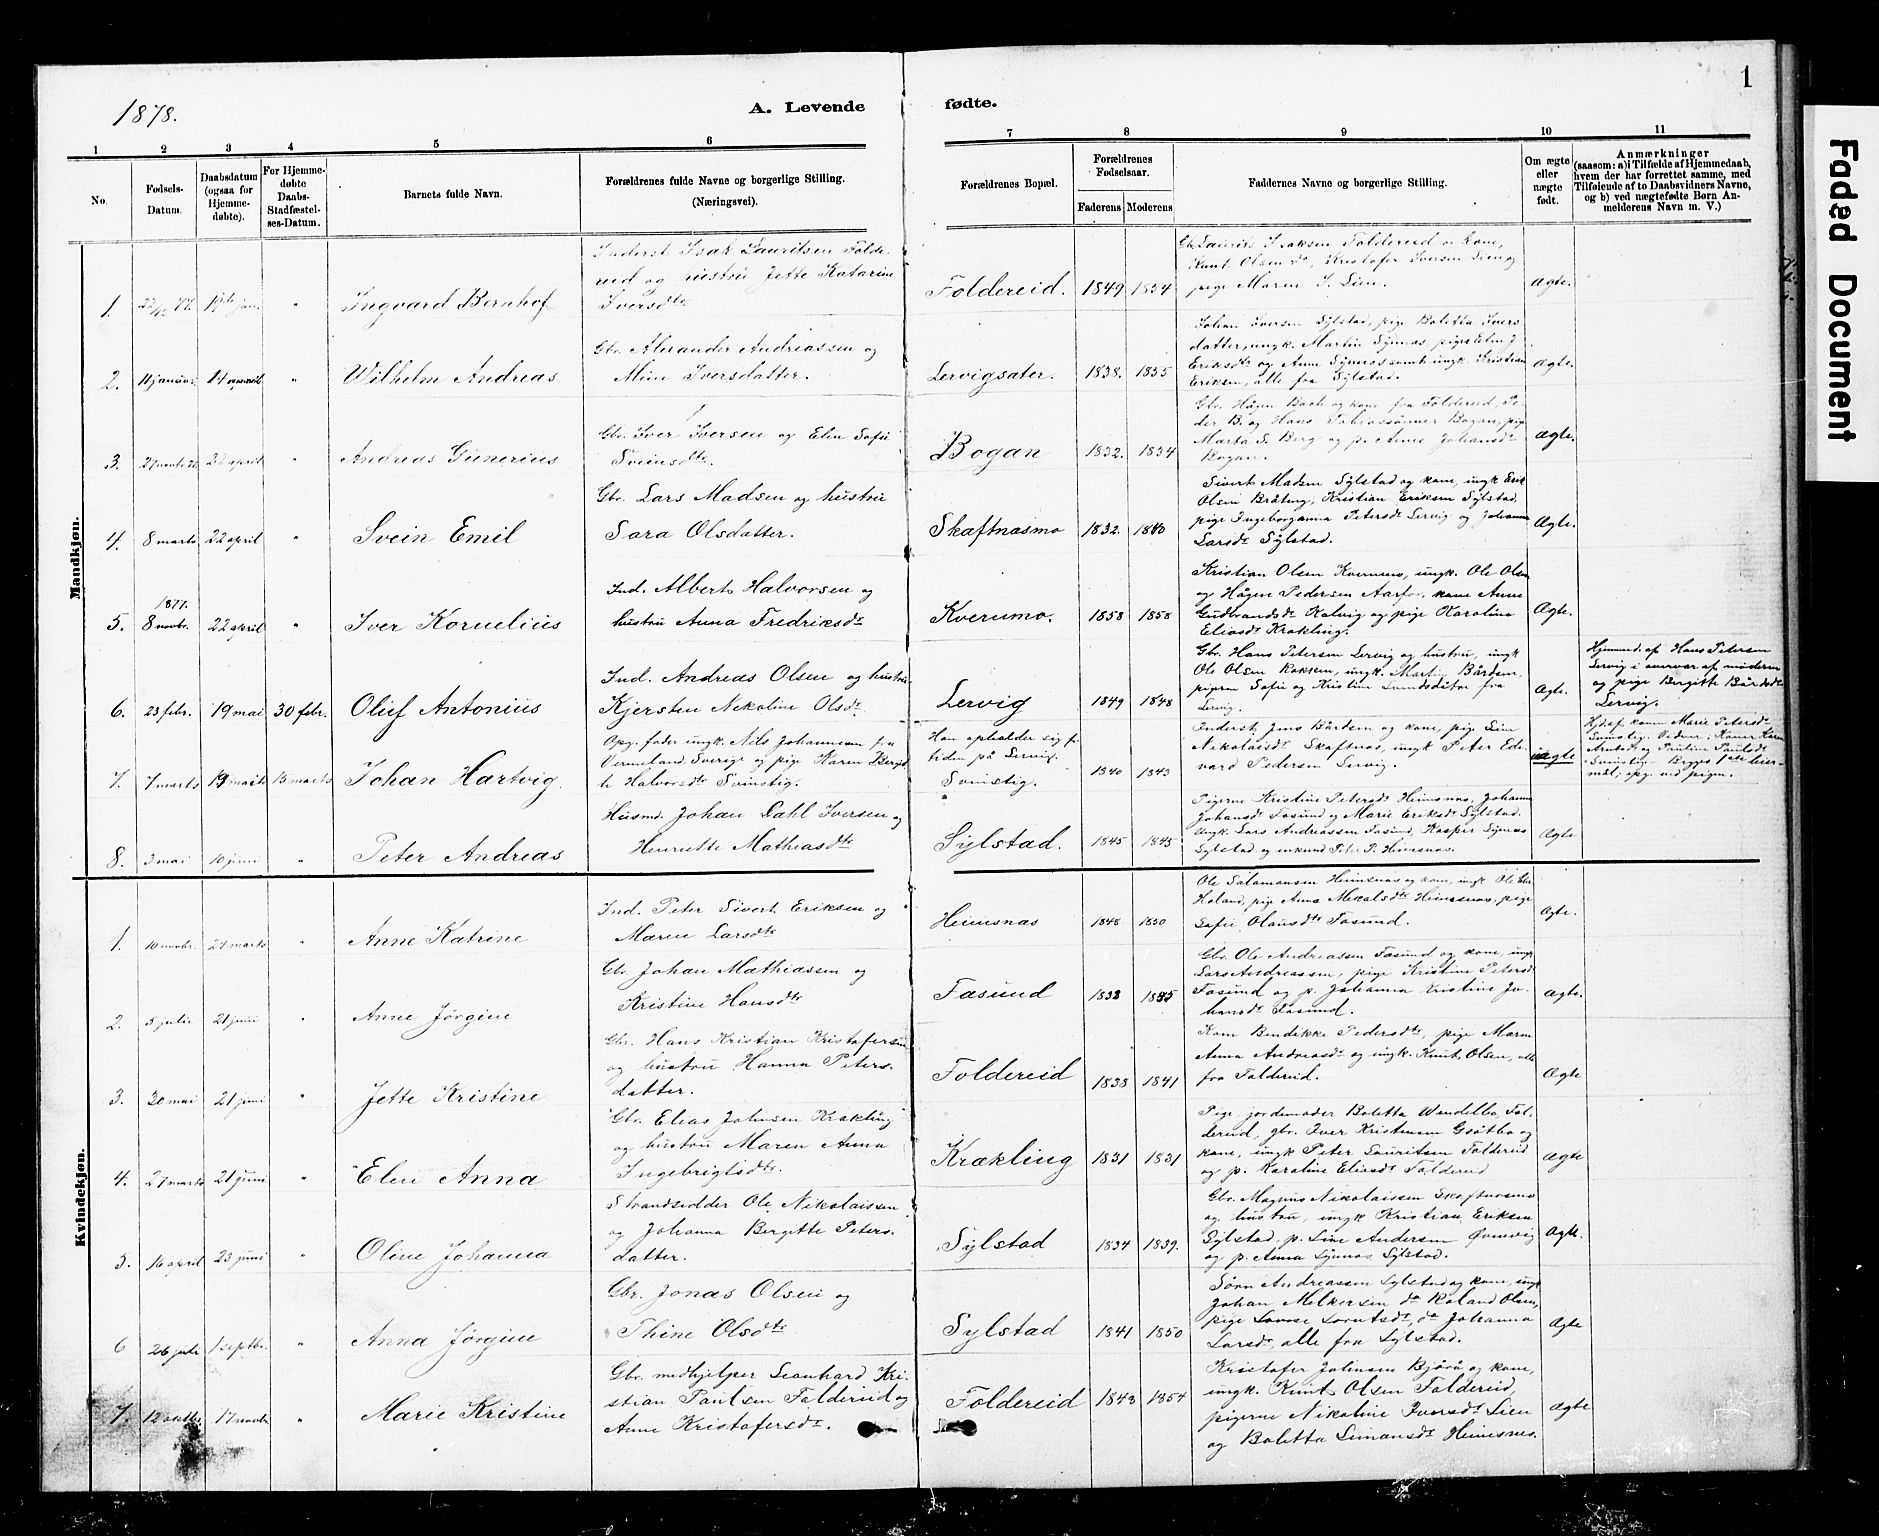 1878.
A. Levende fødte.
1
Faded Document
1 2 3 4 5 6 7 8 9 10 11
No.
Fødsels-Datum.
Daabsdatum (ogsaa for Hjemmedøbte).
For Hjemmedøbte Daabs-Stadfæstelses-Datum.
Barnets fulde Navn.
Forældrenes fulde Navne og borgerlige Stilling. (Næringsvei).
Forældrenes Bopæl.
Forældrenes Fødselsaar.
Faderens Moderens
Faddernes Navne og borgerlige Stilling.
Om ægte eller uægte født.
Anmærkninger
(saasom: a) i Tilfælde af Hjemmedaab, hvem der har forrettet samme, med Tilføiende af to Daabsvidners Navne, og b) ved uægtefødte Børn Anmelderens Navn m. V.)
Mandkjøn.
1. 22/12 77. Ingvard Bernhof
Inderst Isak Lauritsen Foldereid og hustru Jette Katarine Iversdtr
Foldereid. 1849 1854
Laurits Isaksen Foldereid og kone, Knut Olsen, Kristofer Iversen Lien og pige Maren I. Lien.
Ægte.
2. 11 januar 14 april " Wilhelm Andreas
Gbr. Alexander Andreassen og Mine Iversdatter.
Lervigsæter. 1838. 1835
Johan Iversen Sylstad, pige Boletta Iversdatter, ungk. Martin
Kristian Eriksen, alle fra Sylstad.
Ægte.
3. 22 april " Andreas Gunerius
Gbr. Iver Iversen og Elen Sofie Sveinsdtr.
Bogan 1832. 1834
Gbr. Hågen Bach og kone fra Foldereid, Peder B. og Hans Tobiassønner Bogan, pige Marta S. Berg og p. Anne Johansdr Bogan.
Ægte.
4. 8 marts 22 april " Svein Emil
Gbr. Lars Madsen og hustru Sara Olsdatter.
Skaftnasmo 1832. 1840
Sivert Madsen Sylstad og kone, ungk Erik Olsen Bråteng, Kristian Eriksen Sylstad, pige Ingeborganna Petersdr Lervig og Johanna Larsdr Sylstad.
Ægte.
5. 1877. 8 novbr. 22 april " Iver Kornelius
Ind. Albert Halvorsen og hustru Anna Fredriksdr
Kvernmo. 1853 1858
Kristian Olsen Kvernmo, ungk. Ole Olsen og Hågen Pedersen Aarfor, kone Anne Gudbrandsdr Kalvig og pige Karolina Eliasdr Krakling.
Ægte.
6. 23 febr. 19 mai 30 febr. Oluf Antonius
Ind. Andreas Olsen og hustru Kjersten Nekoline Olsdr
Lervig 1849 1848
Gbr. Hans Petersen Lervig og hustru, ungk Ole Olsen, ungk. Martin Bårdsen, pigen Sofie og Kristine fra Lervig.
Ægte.
Hjemmed. af Hans Petersen Lervig i overvær af moderen og pige Bergitte Bårdsdr Lervig.
7. 7 marts 19 marts 13 marts Johan Hartvig
Opg. fader ungk. Nils Johannesen fra Vermeland, Sverige og pige Karen Bergitte Halvorsdr Svinstig.
Han opholder sig for tiden på Lervig. Svinstig. 1840 1843
Inderst Jens Bårdsen og kone, pige Line Nikolaisdr Skaftnas, ungk Peter Edevard Pedersen Lervig.
uægte
Hjd. af kone Marie Petersdr Svinstig. Vidner: Konen Karen og Pauline Paulsdr Svinstig. Begges 1ste leiermål; opg. ved pigen.
8. 3 mai 10 juni " Peter Andreas
Husmd. Johan Dahl Iversen og Henriette Mathiasdtr
Sylstad. 1845 1845
Pigerne Kristine Petersdr Heimsnas, Johanna Johansdr Fasund og Marie Eriksdr Sylstad. Ungk. Lars Andreassen Fasund, Kasper Sylstad, og enkemd Peter P. Heimsnas.
Ægte
Kvindekjøn.
1. 10 novbr. 24 marts " Anne Katrine
Ind. Peter Sivert Eriksen og Maren Larsdtr
Heimsnas 1848 1850
Ole Salamonsen Heimsnas og kone, ungk Ole Chr. Høland, pige Anna Mekalsdtr Heimsnas, pige Sofie Olausdtr Fasund.
Ægte.
2. 5 julii 21 juni Anne Jørgine
Gbr. Johan Mathiassen og Kristine Hansdtr
Fasund 1832 1835
Gbr. Ole Andreassen Fasund og kone, ungk Lars Andreassen, pige Kristine Petersdr Fasund og p. Johanna Kristine Johansdr Fasund.
Ægte.
3. 20 mai 21 juni " Jette Kristine
Gbr. Hans Kristian Kristofersen og hustru Hanna Petersdatter.
Foldereid 1833 1841
Kone Bendikke Pedersdtr, pige Maren Anna Andreasdr og ungk. Knut Olsen, alle fra Foldereid.
Ægte
4. 27 marts 21 juni " Elen Anna
Gbr. Elias Johnsen Krakling og hustru Maren Anna Ingebrigtsdtr.
Krækling 1831 1831
Pige, jordemoder Boletta Wendelbo, Foldereid, gbr. Iver Kristensen Gsøtbo og kone, ungk Peter Lauritsen Foldereid og p. Karoline Eliasdr Foldereid
Ægte
5. 16 april 23 juni " Oline Johanna
Strandsidder Ole Nikolaissen og Johanna Bergitte Petersdatter.
Sylstad 1834 1839.
Gbr. Magnus Nikolaissen Skaftnesmo og hustru, ungk Kristian Eriksen Sylstad, p. Line Andersen og p. Anna Sylstad.
Ægte.
6 26 juli 1 septbr. " Anna Jørgine
Gbr. Jonas Olsen og Thine Olsdtr
Sylstad 1841 1850
Sørn Andreassen Sylstad og kone, ungk Johan Melkersen do Roland Olsen, pige Lovise Lorntsdr, do Johanna Larsdr, alle fra Sylstad.
Ægte
7. 12 oktbr 17 novbr " Marie Kristine
Gbr. medhjelper Leonhard Kristian Paulsen Foldereid og Anne Kristofersdr.
Foldereid 1843 1854
Kristofer Johnsen Bjørå og kone, ungk. Knut Olsen Foldereid, pigerne Nikoline Iversdr Lien og Boletta Simonsdr Heimsnes.
Ægte